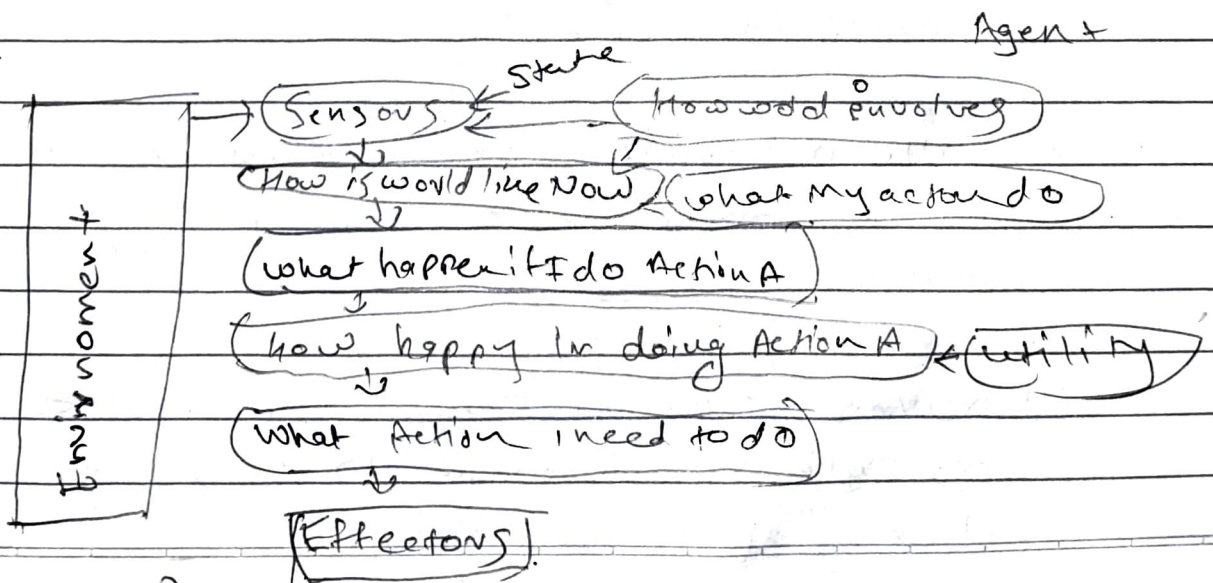 Agent
State
Sensors
How wold envolves
How is world like Now
what My action do
what happen if I do Action A
How happy In doing Action A
utility
What Action i need to do
Effectors
Environment